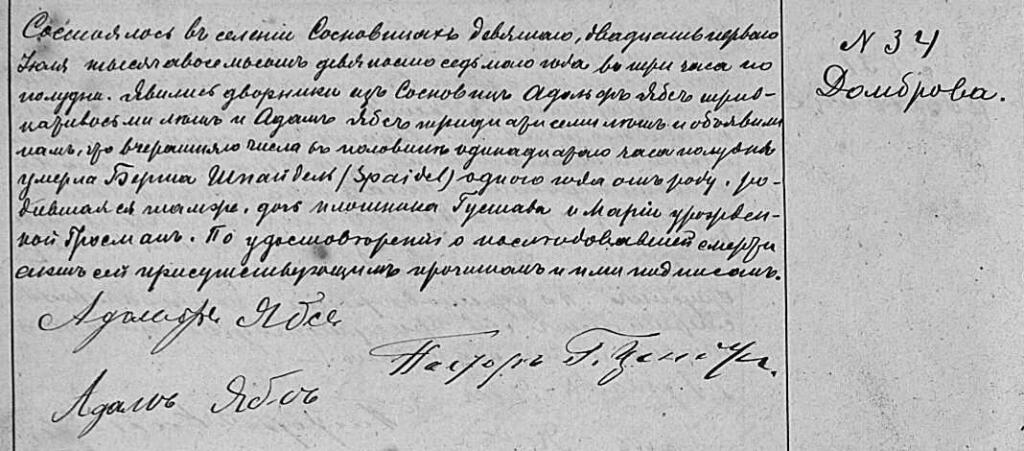 Состоялось въ селеніи Сосновицахъ девятаго, двадцать перваго
Іюля тысяча восемьсотъ девяносто седьмаго года въ три часа по
полудни. Явились дворники изъ Сосновицъ Адольфъ Ябсъ трид-
цати восьми лѣтъ и Адамъ Ябсъ тридцати семи лѣтъ и объявили
намъ, что вчерашняго числа въ половинѣ одинадцатаго часа полудня
умерла Берта Шпайдель (Spaidel) одного года отъ роду, ро-
дившаяся тамже, дочь плотника Густава и Маріи урожден-
ной Гросманъ. По удостовѣреніи о послѣдовавшей смерти
актъ сей присутствующимъ прочитанъ и ими подписанъ.
Адольфъ Ябсъ
Пасторъ Г.
Адамъ Ябсъ
N 34
Домброва.